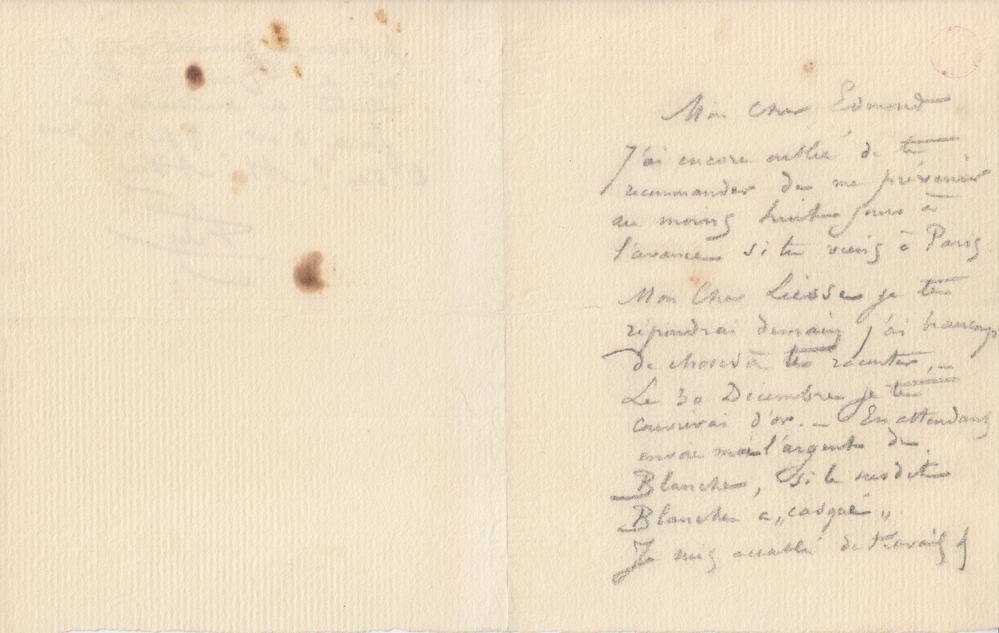 Mon Cher Edmond
J'ai encore oublié de te
recommander de me prévenir
au moins huit jours à
l'avance si tu viens à Paris.
Mon Cher Liesse je te
répondrai demain j'ai beaucoup
de choses à te raconter, –
Le 30 Décembre je te
couvrirai d'or. – En attendant
envoie moi l'argent de
Blanche, si le susdit
Blanche a „casqué„.
Je suis accablé de travail &